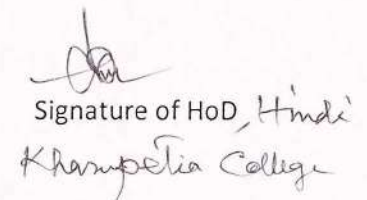 Signature of HoD, Hindi
Kharupetia College